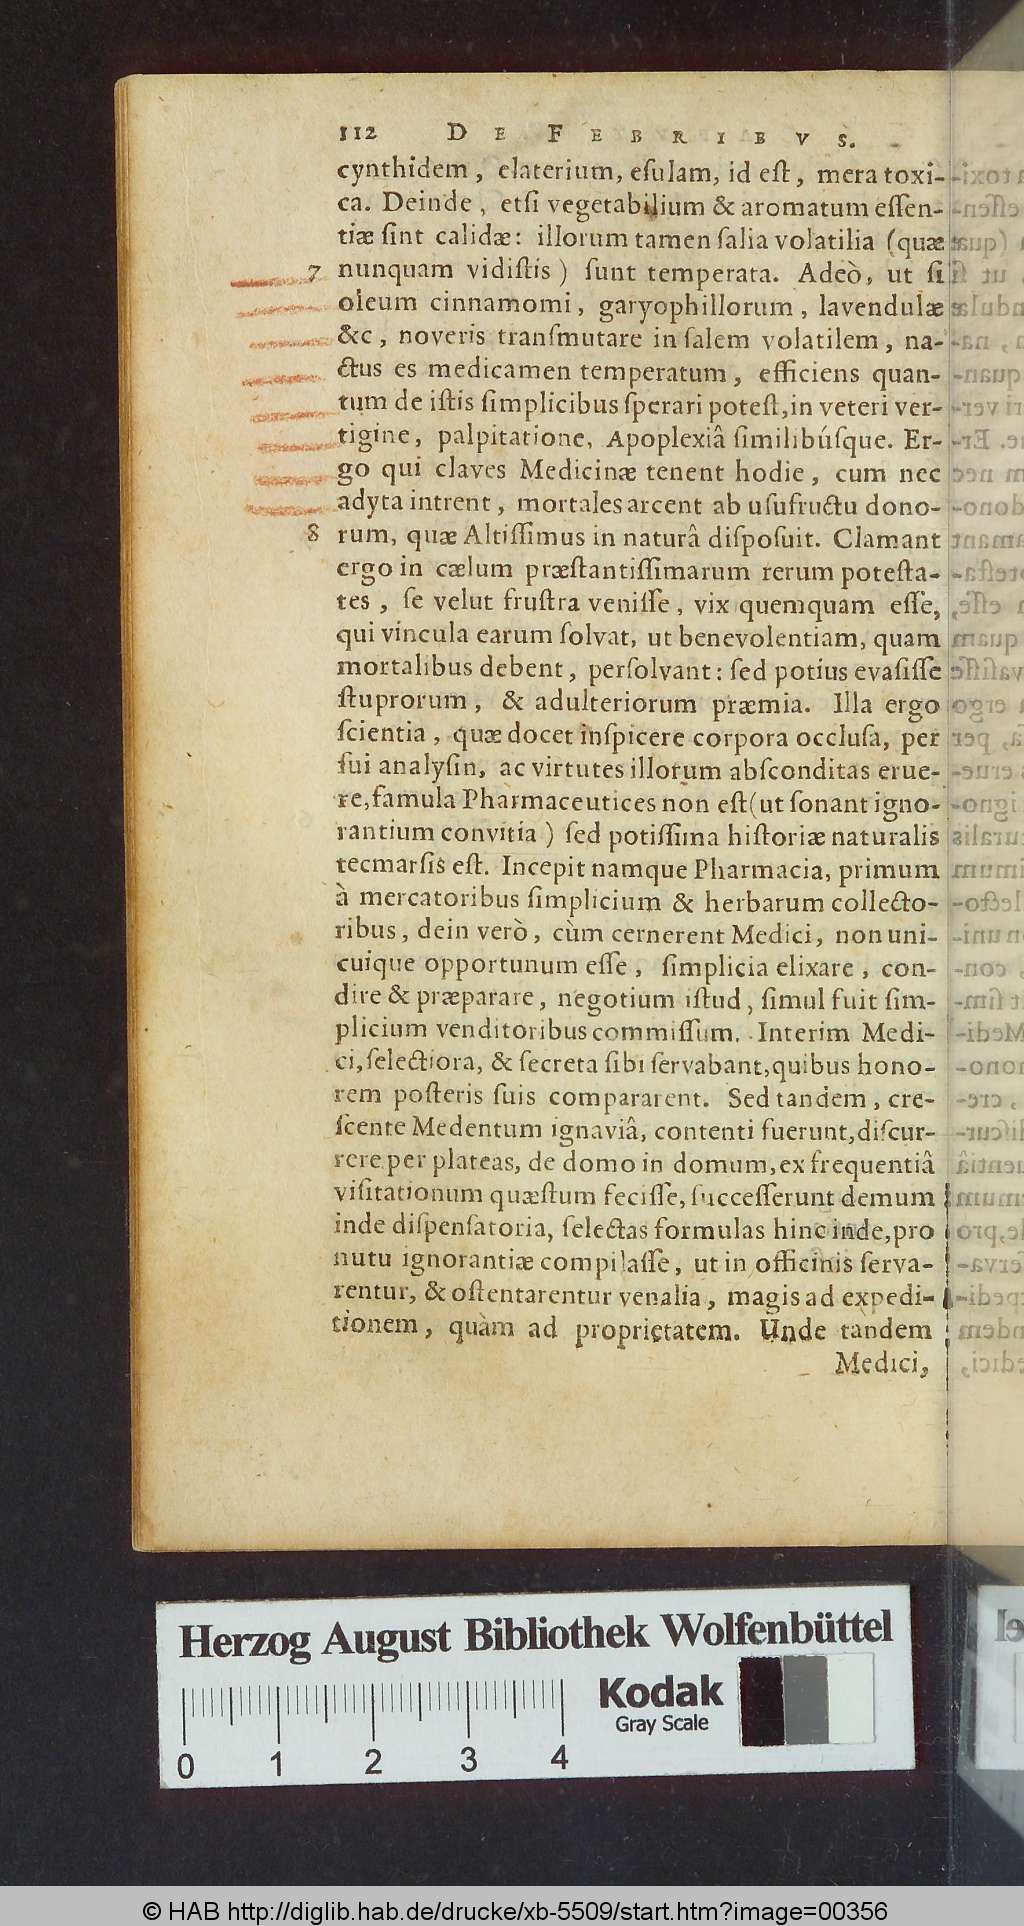 112 DE FEBRIBVS.
cynthidem, elaterium, eſulam, id eſt, mera toxi-
ca. Deinde, etſi vegetabilium & aromatum eſſen-
tiæ ſint calidæ: illorum tamen ſalia volatilia (quæ
7 nunquam vidiſtis) ſunt temperata. Adeò, ut ſi
oleum cinnamomi, garyophillorum, lavendulæ
&c, noveris tranſmutare in ſalem volatilem, na-
ctus es medicamen temperatum, efficiens quan-
tum de iſtis ſimplicibus ſperari poteſt, in veteri ver-
tigine, palpitatione, Apoplexiâ ſimilibúſque. Er-
go qui claves Medicinæ tenent hodie, cum nec
adyta intrent, mortales arcent ab uſufructu dono-
8 rum, quæ Altiſſimus in naturâ diſpoſuit. Clamant
ergo in cælum præſtantiſſimarum rerum poteſta-
tes, ſe velut fruſtra veniſſe, vix quemquam eſſe,
qui vincula earum ſolvat, ut benevolentiam, quam
mortalibus debent, perſolvant: ſed potius evaſiſſe
ſtuprorum, & adulteriorum præmia. Illa ergo
ſcientia, quæ docet inſpicere corpora occluſa, per
ſui analyſin, ac virtutes illorum abſconditas erue-
re, famula Pharmaceutices non eſt (ut ſonant igno-
rantium convitia) ſed potiſſima hiſtoriæ naturalis
tecmarſis eſt. Incepit namque Pharmacia, primum
à mercatoribus ſimplicium & herbarum collecto-
ribus, dein verò, cùm cernerent Medici, non uni-
cuique opportunum eſſe, ſimplicia elixare, con-
dire & præparare, negotium iſtud, ſimul fuit ſim-
plicium venditoribus commiſſum. Interim Medi-
ci, ſelectiora, & ſecreta ſibi ſervabant, quibus hono-
rem poſteris ſuis compararent. Sed tandem, cre-
ſcente Medentum ignaviâ, contenti fuerunt, diſcur-
rere per plateas, de domo in domum, ex frequentiâ
viſitationum quæſtum feciſſe, ſucceſſerunt demum
inde diſpenſatoria, ſelectas formulas hinc inde, pro
nutu ignorantiæ compilaſſe, ut in officinis ſerva-
rentur, & oſtentarentur venalia, magis ad expedi-
tionem, quàm ad proprietatem. Unde tandem
Medici,
Herzog August Bibliothek Wolfenbüttel
Kodak
Gray Scale
0 1 2 3 4
© HAB http://diglib.hab.de/drucke/xb-5509/start.htm?image=00356